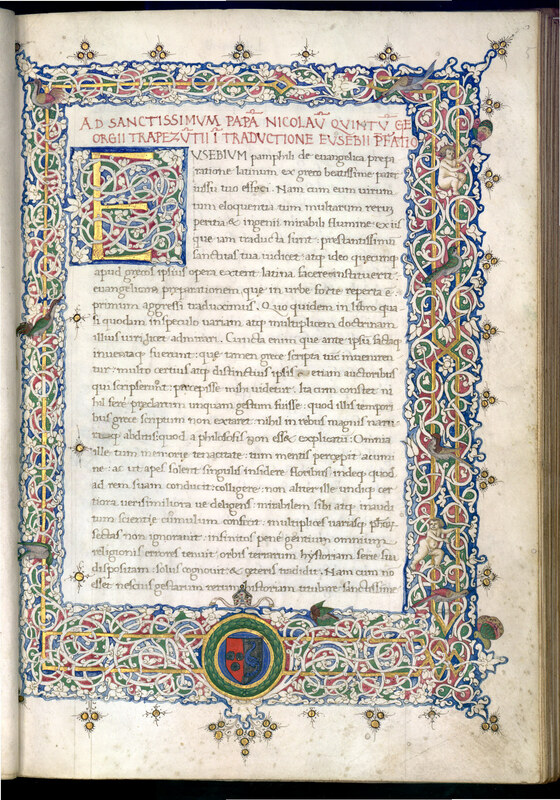 AD SANCTISSIMVM PAPĀ NICOLAŪ QVINTŪ GE
ORGII TRAPEZVTII Ī TRADVCTIONE EVSEBII P̄FATIO
EVSEBIUM pamphili de euangelica prepa
ratione latinum ex greco beatissime pater
iussu tuo effeci. Nam cum eum uirum
tum eloquentia tum multarum rerum
peritia & ingenii mirabili flumine ex iis
que iam traducta sunt prestantissimū
sanctitas tua iudicet, atqȝ ideo quecunqȝ
apud grecos ipsius opera extent latina facere instituerit:
euangelicam preparationem, que in urbe forte reperta ē
primum aggressi traduximus. Quo quidem in libro qua
si quodam in speculo uariam atqȝ multiplicem doctrinam
illius uiri licet admirari. Cuncta enim que ante ipsū facta
inuentaqȝ fuerunt: que tamen grece scripta tūc inueniren
tur multo certius atqȝ distinctius ipsis etiam auctoribus
qui scripserunt: percepisse mihi uidetur. Ita cum constet ni
hil fere preclarum unquam gestum fuisse: quod illis tempori
bus grece scriptum non extaret: nihil in rebus magnis natu
raqȝ abditis: quod a philosophis non esset explicatū: Omnia
ille tum memorie tenacitate: tum mentis percepit acumi
ne: ac ut apes solent singulis insidere floribus indeqȝ quod
ad rem suam conducit: colligere: non aliter ille undiqȝ cer
tiora uerisimiliora ue deligens mirabilem sibi atqȝ inaudi
tum scientie cumulum confecit: multiplices uariasqȝ phōȝ
sectas non ignorauit: infinitos pene gentium omnium
religionis errores tenuit: orbis terrarum hystoriam serie sua
dispositam solus cognouit & ceteris tradidit. Nam cum nō
esset nescius gestarum rerum historiam titubare sanctissime